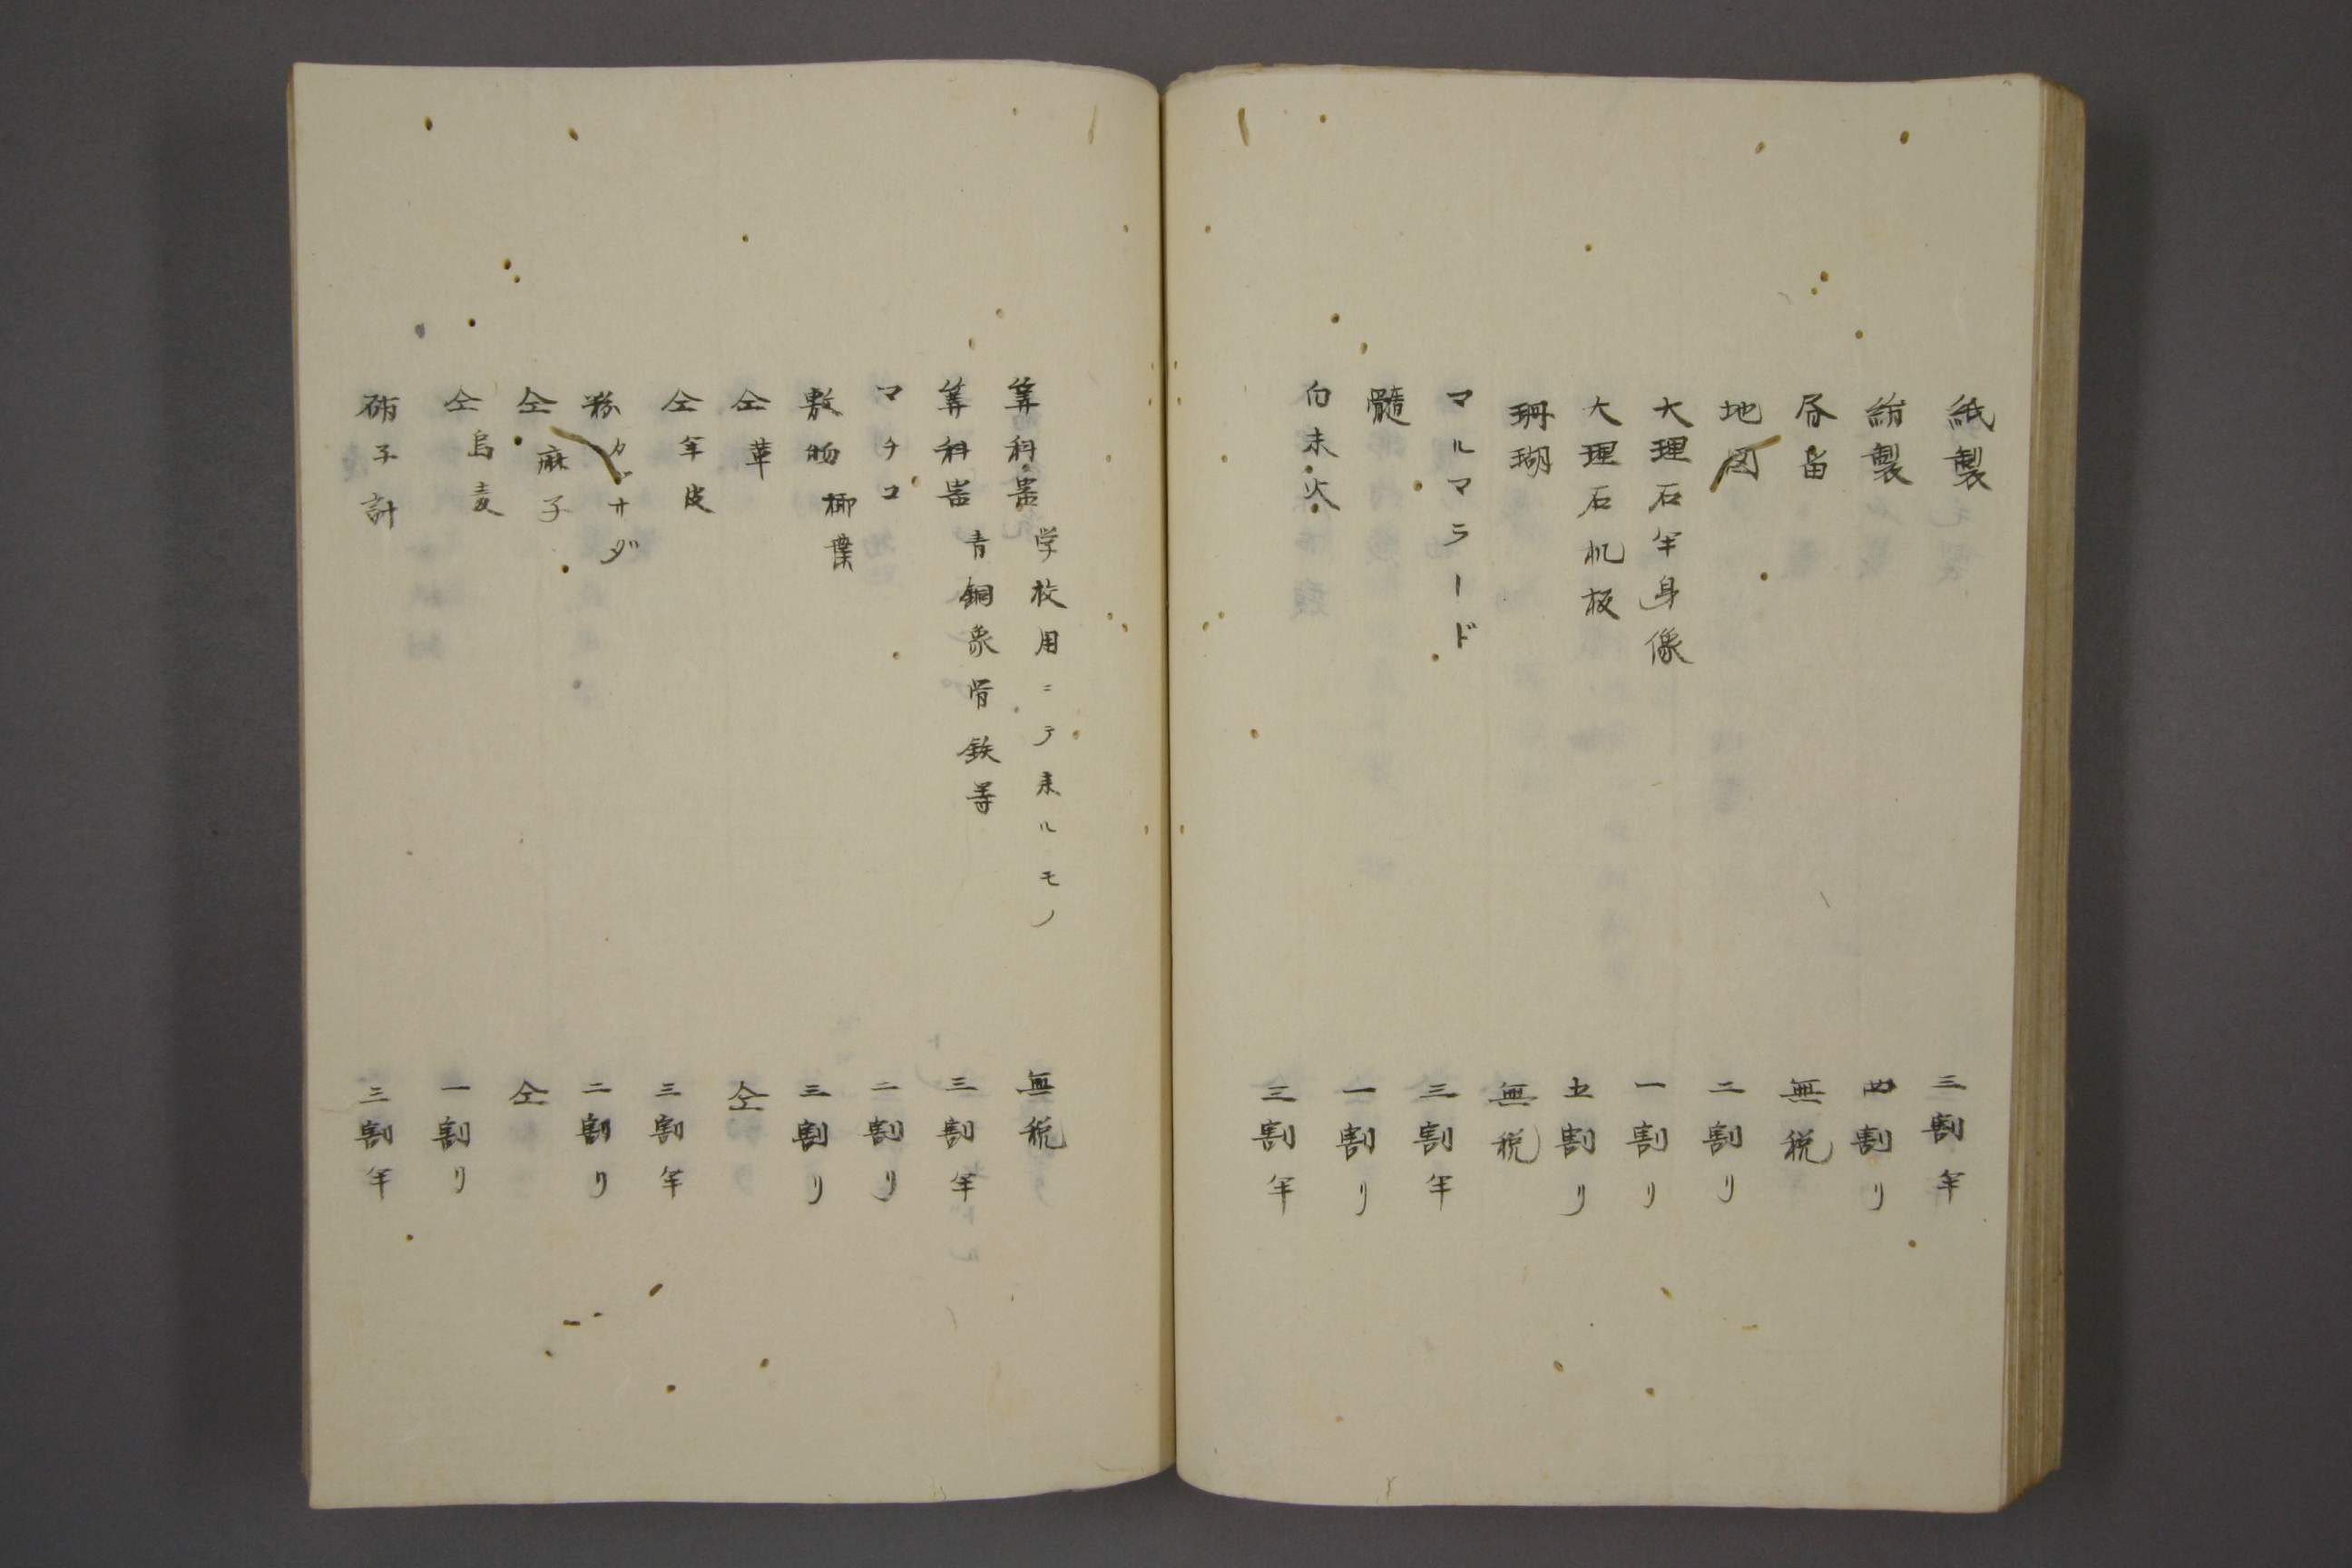 紙製 三割半
絹製 四割り
昼留 無税
地図 二割り
大理石半身像 一割り
大理石机板 五割り
珊瑚 無税
マルマラード 三割半
髓 一割り
白末火 三割半
算科器 学校用ニテ来ルモノ 無税
算科器 青銅象骨鉄等 三割半
マチコ 二割り
敷物 椰葉 三割り
仝 革 仝
仝 羊皮 三割半
粉 カゲサダ 二割り
仝 麻子 仝
仝 烏麦 一割り
硝子計 三割半